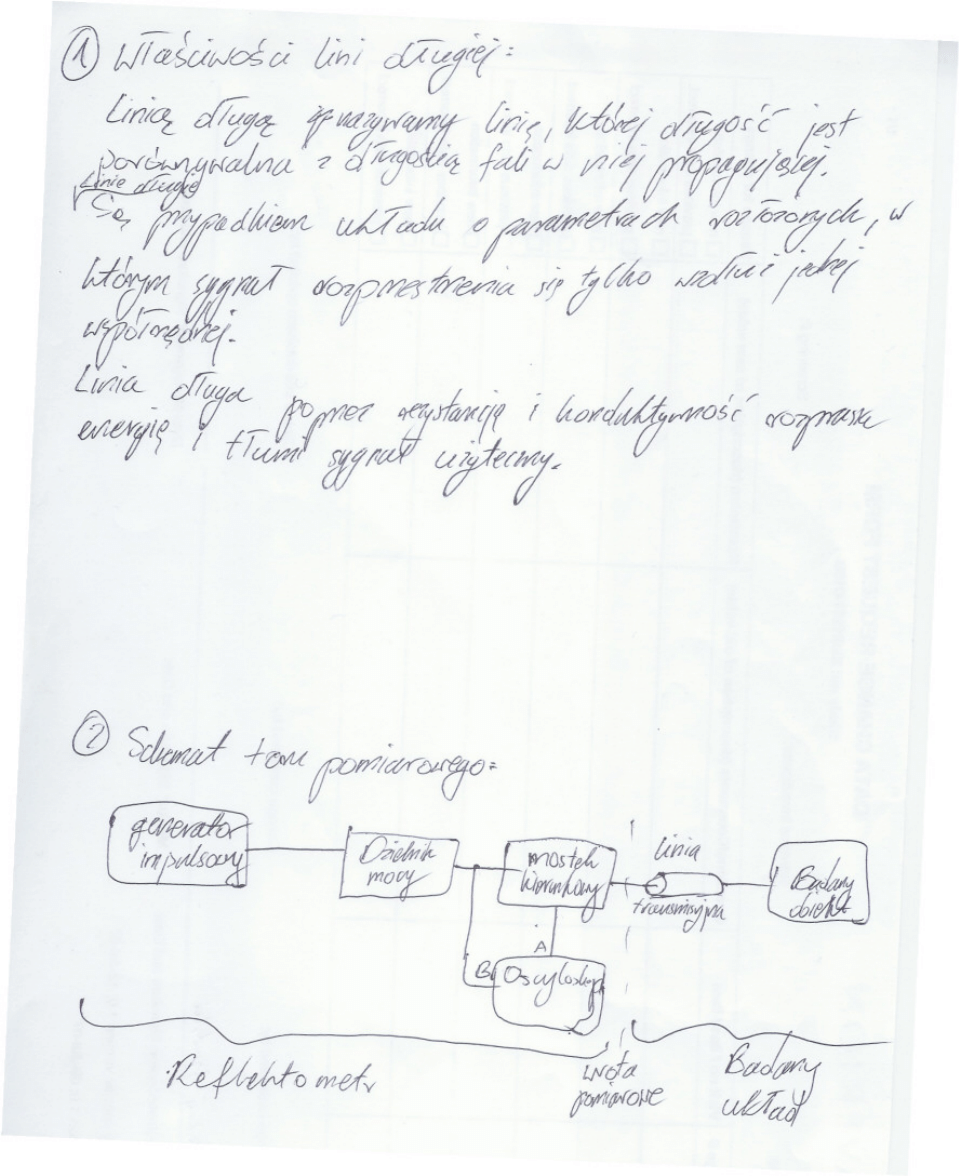 ① Właściwości lini długiej:
Linią długą nazywamy linię, której długość jest
porównywalna z długością fali w niej propagującej.
Linie długie
Są przypadkiem układu o parametrach rozłożonych, w
którym sygnał rozprzestrzenia się tylko wzdłuż jednej
współrzędnej.
Linia długa poprzez rezystancję i konduktywność rozprasza
energię i tłumi sygnał użyteczny.
② Schemat toru pomiarowego:
generator
impulsowy
Dzielnik
mocy
mostek
kierunkowy
linia
transmisyjna
Badany
obiekt
A
B
Oscyloskop
Reflektometr
wrota
pomiarowe
Badany
układ